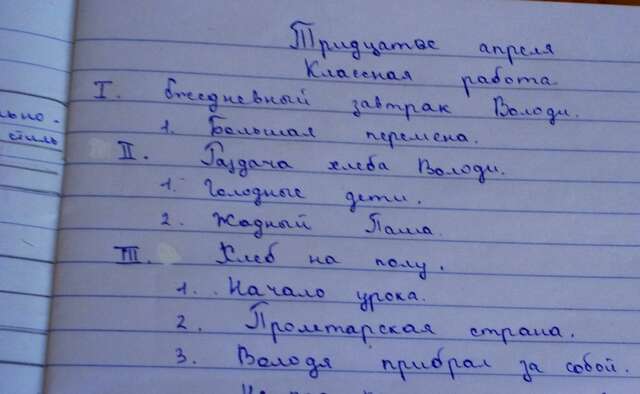 Тридцатое апреля
Классная работа
I. Ежедневный завтрак Володи.
1. Большая перемена.
II. Раздача хлеба Володи.
1. Голодные дети.
2. Жадный Паша.
III. Хлеб на полу.
1. Начало урока.
2. Пролетарская страна.
3. Володя прибрал за собой.
ьно-
стиль